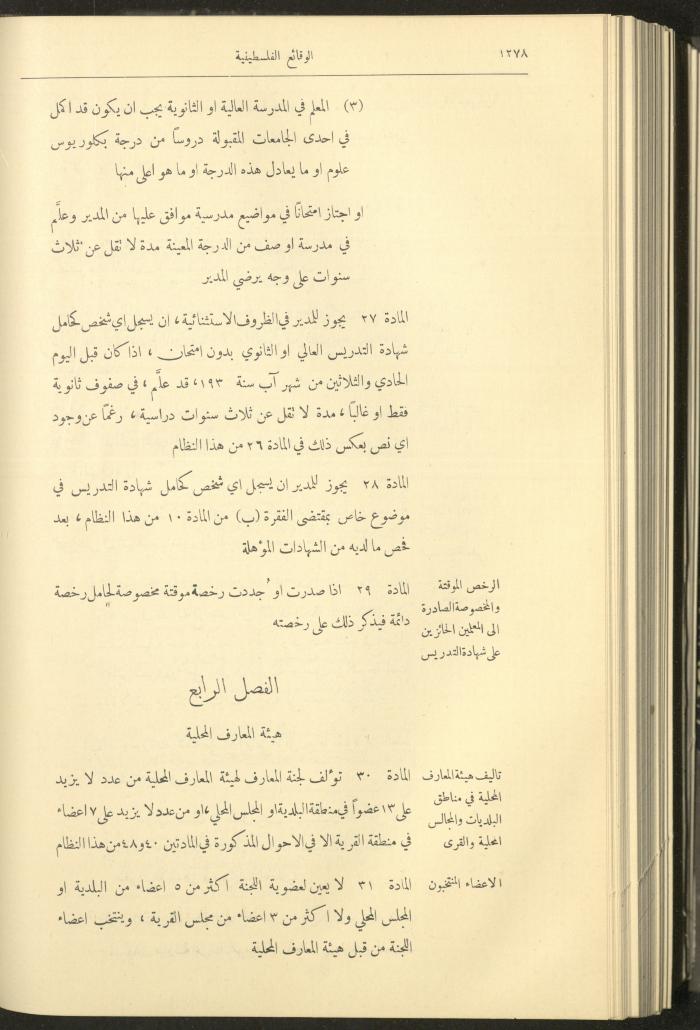 ١٢٧٨
الوقائع الفلسطينية
(٣) المعلم في المدرسة العالية او الثانوية يجب ان يكون قد اكمل
في احدى الجامعات المقبولة دروساً من درجة بكلوريوس
علوم او ما يعادل هذه الدرجة او ما هو اعلى منها
او اجتاز امتحاناً في مواضيع مدرسية موافق عليها من المدير وعلَّم
في مدرسة او صف من الدرجة المعينة مدة لا تقل عن ثلاث
سنوات على وجه يرضي المدير
المادة ٢٧ يجوز للمدير في الظروف الاستثنائية، ان يسجل اي شخص كحامل
شهادة التدريس العالي او الثانوي بدون امتحان، اذا كان قبل اليوم
الحادي والثلاثين من شهر آب سنة ١٩٣، قد علَّم، في صفوف ثانوية
فقط او غالباً، مدة لا تقل عن ثلاث سنوات دراسية، رغماً عن وجود
اي نص بعكس ذلك في المادة ٢٦ من هذا النظام
المادة ٢٨ يجوز للمدير ان يسجل اي شخص كحامل شهادة التدريس في
موضوع خاص بمقتضى الفقرة (ب) من المادة ١٠ من هذا النظام، بعد
فحص ما لديه من الشهادات المؤهلة
الرخص الموقتة
والمخصوصة الصادرة
الى المعلمين الحائزين
على شهادة التدريس
المادة ٢٩ اذا صدرت او جددت رخصة موقتة مخصوصة لحامل رخصة
دائمة فيذكر ذلك على رخصته
الفصل الرابع
هيئة المعارف المحلية
تاليف هيئة المعارف
المحلية في مناطق
البلديات والمجالس
المحلية والقرى
المادة ٣٠ تؤلف لجنة المعارف لهيئة المعارف المحلية من عدد لا يزيد
على ١٣ عضواً في منطقة البلدية او المجلس المحلي، او من عدد لا يزيد على ٧ اعضاء
في منطقة القرية الا في الاحوال المذكورة في المادتين ٤٠ و٤٨ من هذا النظام
الاعضاء المنتخبون
المادة ٣١ لا يعين لعضوية اللجنة اكثر من ٥ اعضاء من البلدية او
المجلس المحلي ولا اكثر من ٣ اعضاء من مجلس القرية، وينتخب اعضاء
اللجنة من قبل هيئة المعارف المحلية